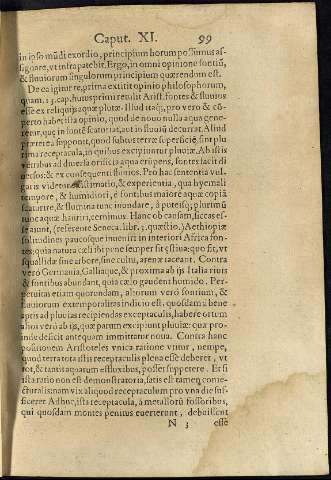 Caput. XI. 99
in ipso mũdi exordio, principium horum possimus as-
signare, vt infra patebit. Ergo, in omni opinione fontiũ,
& fluuiorum singulorum principium quærendum est.
De ea igitur re, prima extitit opinio philosophorum,
quam. 13. cap. huius primi retulit Arist. fontes & fluuios
esse ex reliquijs aquæ pluuiæ. Illud itaq; pro vero & cõ-
perto habet illa opinio, quod de nouo nulla aqua gene-
retur, quę in fonte scaturiat, aut in fluuiũ decurrat. Aliud
præterea supponit, quod sub terræ superficie, sint plu-
rima receptacula, in quibus excipiuntur pluuiæ. Ab istis
visceribus ad diuersa orificia aqua erũpens, fontes facit di-
uersos: & ex consequenti fluuios. Pro hac sententia vul-
garis videtur existimatio, & experientia, qua hyemali
tempore, & humidiori, e fontibus maiore aquæ copiã
scaturire, & flumina tunc inundare, à puteisq; plurimũ
tunc aquæ hauriri, cernimus. Hanc ob causam, siccas es-
se aiunt, (referente Seneca. lib. 3. quæstio.) Aethiopiæ
solitudines paucosque inueniri in interiori Africa fon-
tes; quia natura cœli ibi pene semper sit æstiua: quo fit, vt
squalidæ sine arbore, sine cultu, arenæ iaceant. Contra
verò Germania, Galliaque, & proxima ab ijs Italia riuis
& fontibus abundant, quia cœlo gaudent humido. Per-
petuitas etiam quorundam, aliorum verò fontium, &
fluuiorum extemporalitas indicio est. quosdam a bene
aptis ad pluuias recipiendas exceptaculis, habere ortum
alios verò ab ijs, quæ parum excipiunt pluuiæ: quæ pro-
inde deficit ante quam immittatur noua. Contra hanc
positionem Aristoteles vnica ratione vtitur, nempe,
quod terra tota istis receptaculis plena esse deberet, vt
tot, & tantis aquarum exfluxibus, posset suppetere. Et si
ista ratio non est demonstratoria, satis est tameq̃ conie-
cturalis: nam vix aliquod receptaculum pro vna die suf-
ficeret Adhuc, ista receptacula, à metallorũ fossoribus,
qui quosdam montes penitus euerterunt, debuissent
N 3 esse